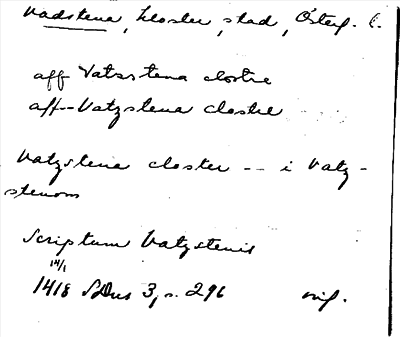 Vadstena, kloster, stad, Österg. l.
aff Vatzstena clostre
aff--Vatzstena clostre
Vatzstena closter -- i Vatz-
stenom
Scriptum Vatzstenis
14/1
1418 SDns 3, s. 296